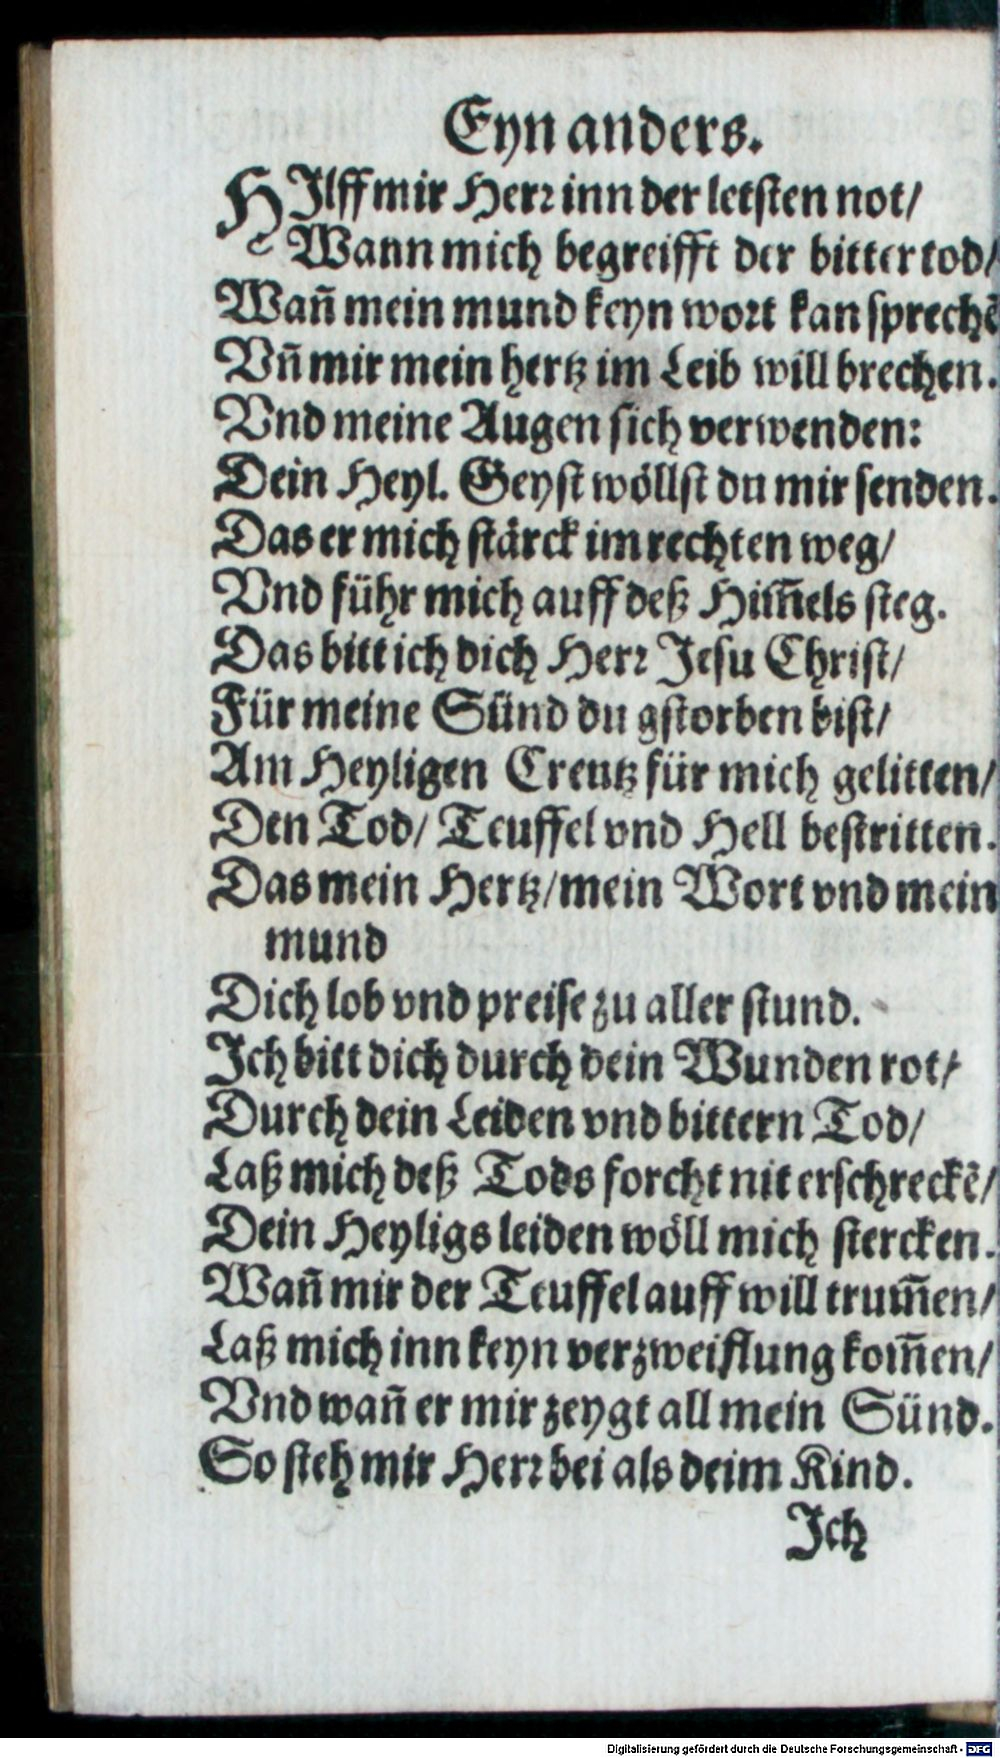 Eyn anders.
HIlff mir Herr inn der letsten not/
Wann mich begreifft der bitter tod/
Wañ mein mund keyn wort kan sprechẽ
Vñ mir mein hertz im Leib will brechen.
Vnd meine Augen sich verwenden:
Dein Heyl. Geyst wöllst du mir senden.
Das er mich stärck im rechten weg/
Vnd führ mich auff deß Him̃els steg.
Das bitt ich dich Herr Jesu Christ/
Für meine Sünd du gstorben bist/
Am Heyligen Creutz für mich gelitten/
Den Tod/ Teuffel vnd Hell bestritten.
Das mein Hertz/ mein Wort vnd mein
mund
Dich lob vnd preise zu aller stund.
Ich bitt dich durch dein Wunden rot/
Durch dein Leiden vnd bittern Tod/
Laß mich deß Tods forcht nit erschreckẽ/
Dein Heyligs leiden wöll mich stercken.
Wañ mir der Teuffel auff will trum̃en/
Laß mich inn keyn verzweiflung kom̃en/
Vnd wañ er mir zeygt all mein Sünd.
So steh mir Herr bei als deim Kind.
Ich
Digitalisierung gefördert durch die Deutsche Forschungsgemeinschaft - DFG